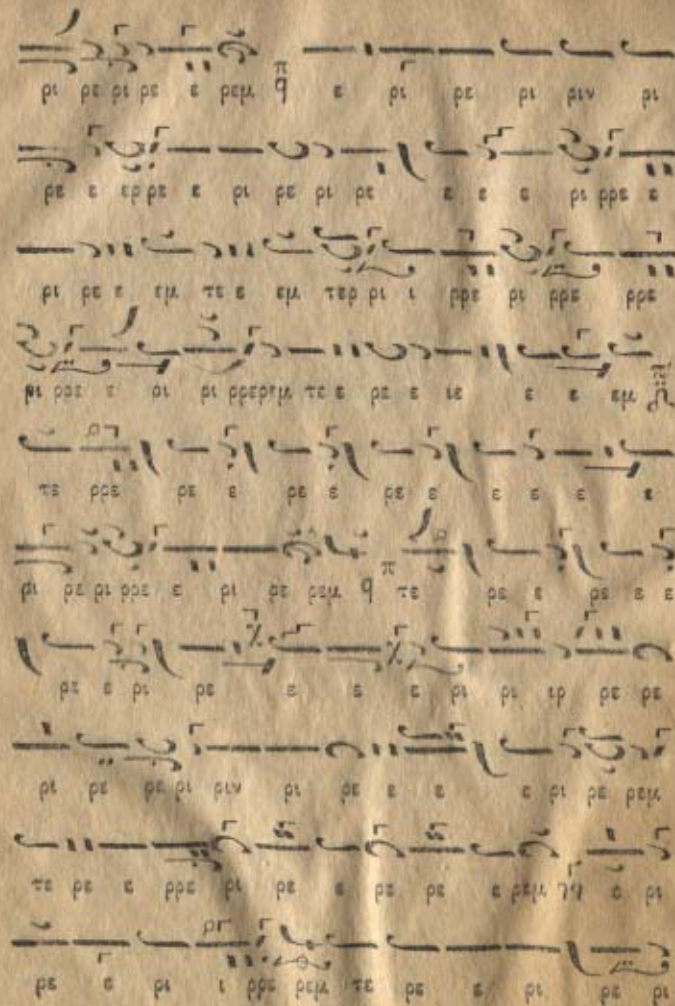 ρι ρε ρι ρε ε ρεμ π q ε ρι ρε ρι ριν ρι
ρε ε ερ ρε ε ρι ρε ρι ρε ε ε ε ρι ρρε ε
ρι ρε ε εμ τε ε εμ τερ ρι ι ρρε ρι ρρε ρρε
ρι ρρε ε ρι ρι ρρερεμ τε ε ρε ε ε ε εμ
τε ρρε ρε ε ρε ε ρε ε ε ε ε ε
ρι ρε ρι ρρε ε ρι ρε ρεμ π q τε ρε ε ρε ε ε
ρε ε ρι ρε ε ε ε ρι ρι ιρ ρε ρε
ρι ρε ρε ρι ριν ρι ρε ε ε ε ρι ρε ρεμ
τε ρε ε ρρε ρι ρε ε ρε ρε ε ρεμ ε ρι
ρε ε ρι ι ρρε ρεμ τε ρε ε ρι ρε ρι